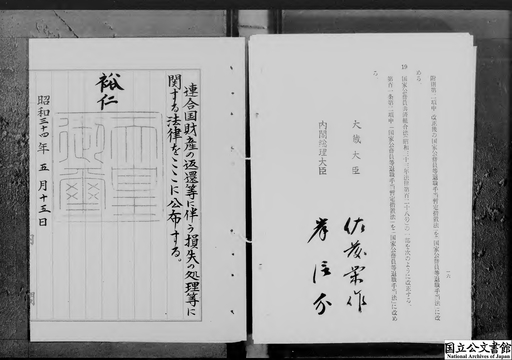 附則第二項中「改正後の国家公務員等退職手当暫定措置法」を「国家公務員等退職手当法」に改
める。
19 国家公務員共済組合法(昭和三十三年法律第百二十八号)の一部を次のように改正する。
第百一条第二項中「国家公務員等退職手当暫定措置法」を「国家公務員等退職手当法」に改め
る。
大蔵大臣 佐藤栄作
内閣総理大臣 岸信介
連合国財産の返還等に伴う損失の処理等に
関する法律をここに公布する。
裕仁
天皇
御璽
昭和三十四年五月十三日
国立公文書館
National Archives of Japan